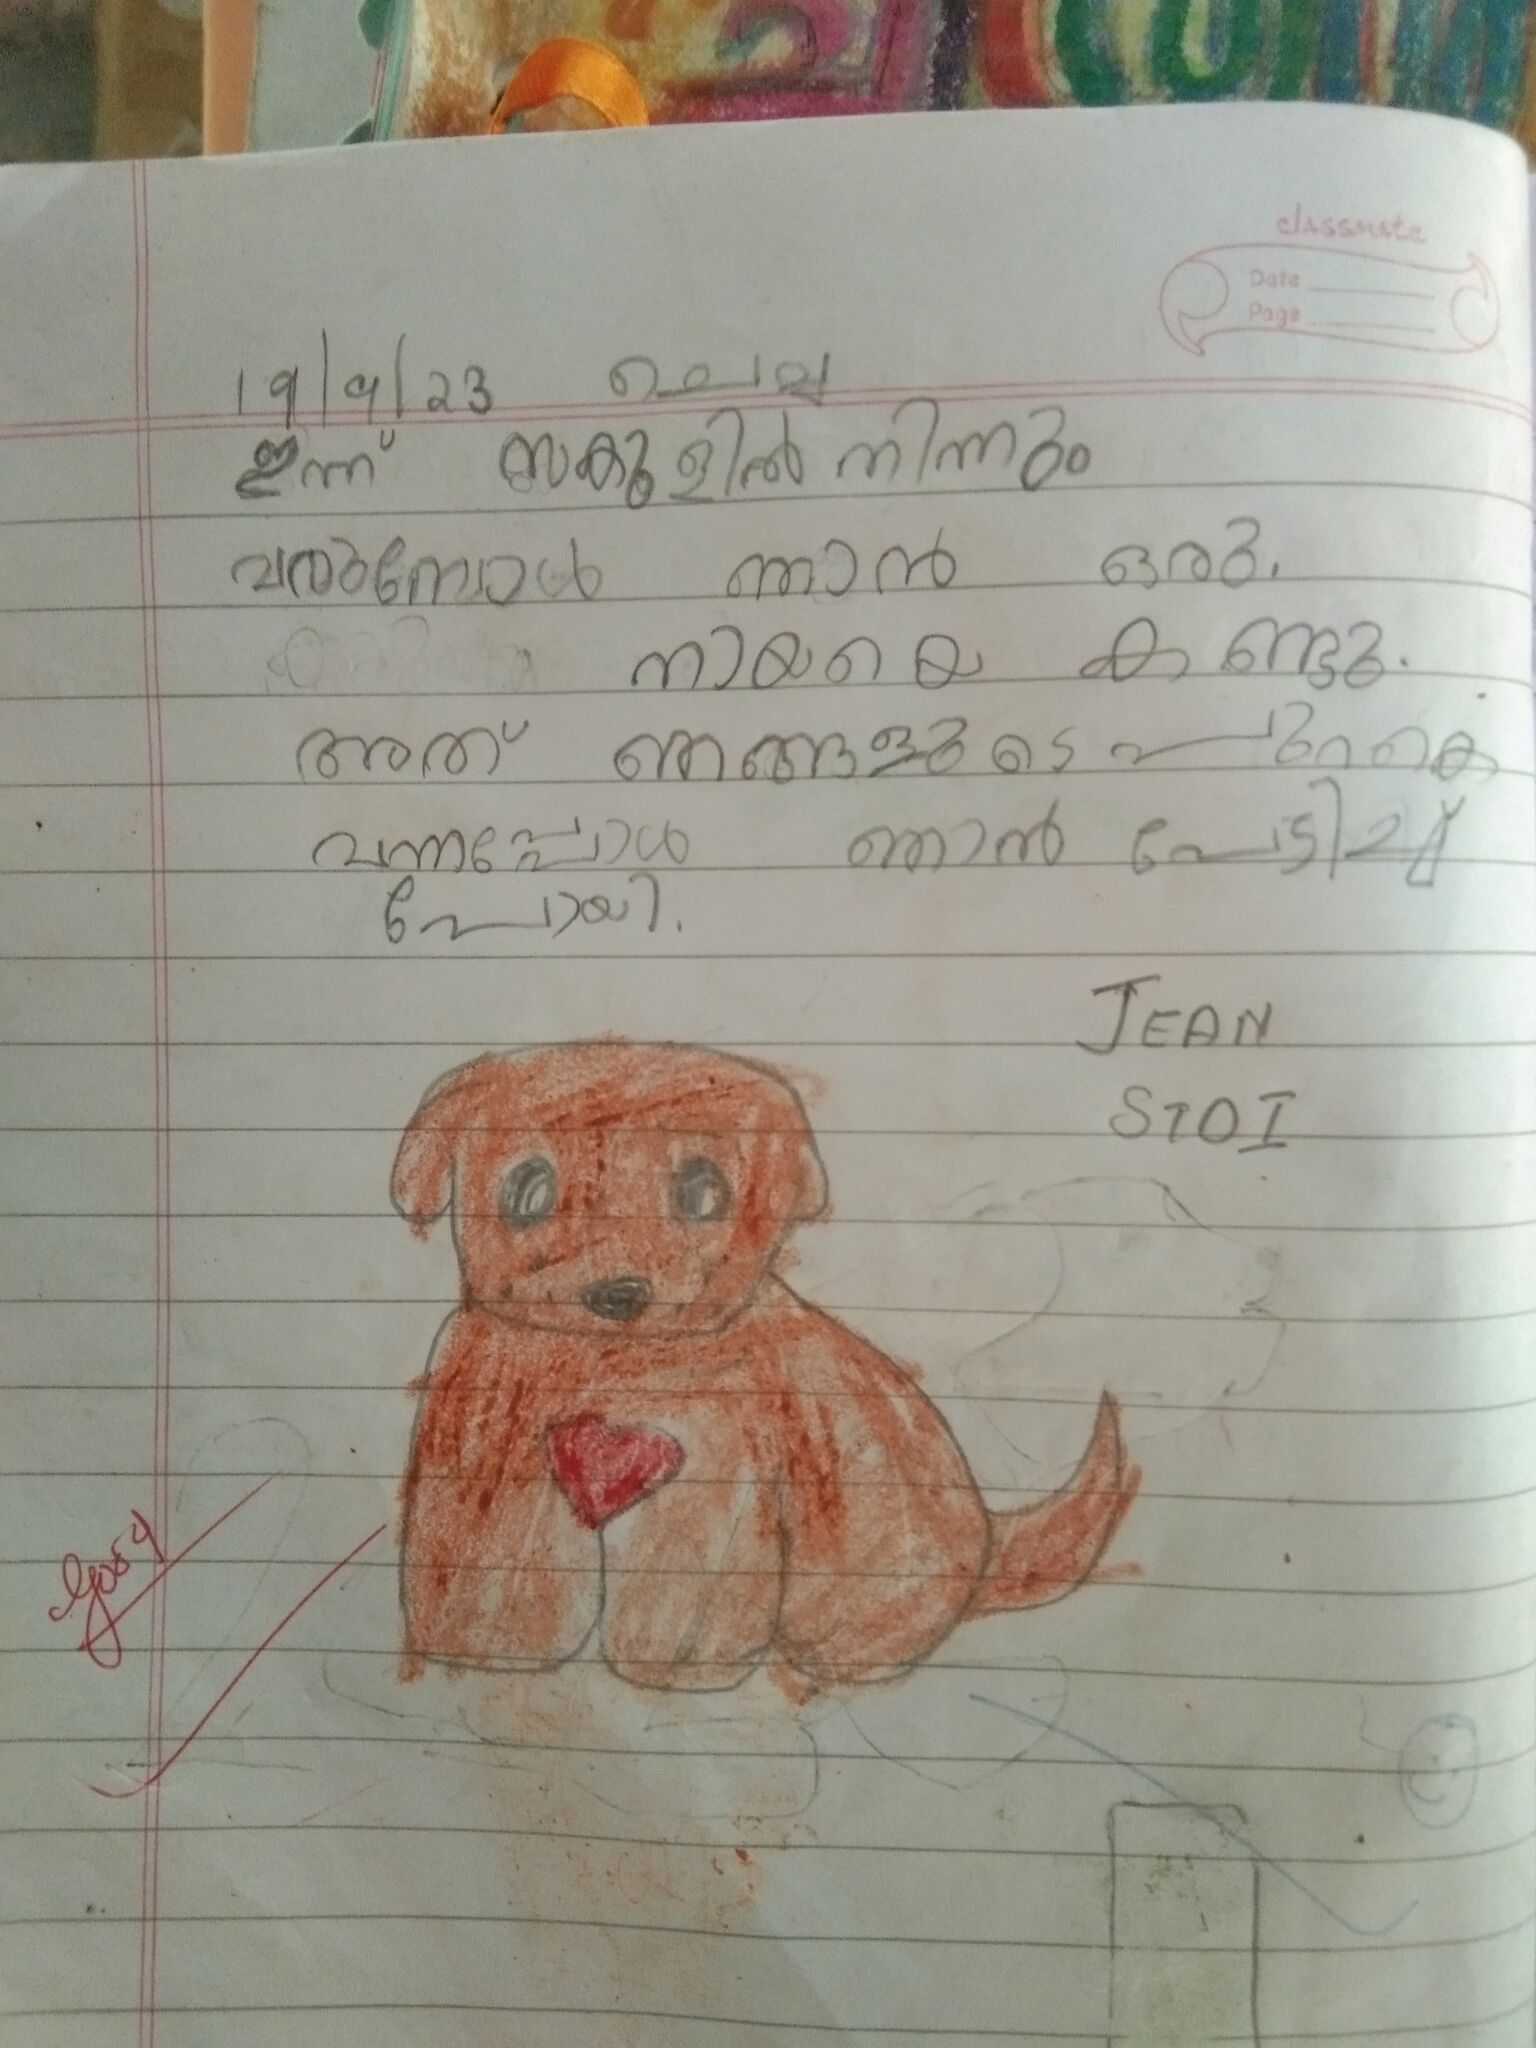 classmate
Date
Page
19/9/23 ചൊവ്വ
ഇന്ന് സകൂളിൽ നിന്നും
വരുമ്പോൾ ഞാൻ ഒരു.
നായയെ കണ്ടു.
അത് ഞങ്ങളുടെ പുറകെ
വന്നപ്പോൾ ഞാൻ പേടിച്ചു
പോയി.
JEAN
STOI